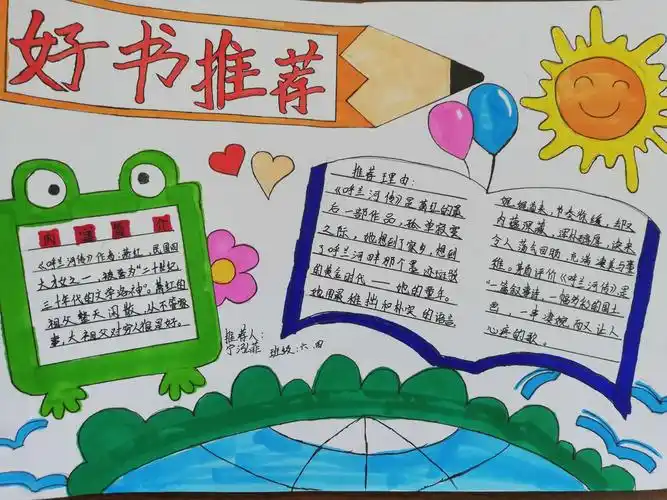 好书推荐
内容简介
《呼兰河传》作者:萧红,民国四
大才女之一,被誉为"二十世纪
三十年代的文学洛神"。萧红的
祖父整天闲散,从不管家
事,大祖父对穷人很是好。
推荐人:
班级:六四
推荐理由:
《呼兰河传》是萧红的最
后一部作品,孤单寂寞
之际,她想到了家乡,想到
了呼兰河畔那个
的黄金时代——她的童年。
她用最雄拙和朴实的语言
娓娓道来,节奏舒缓,却又
内蕴深藏,深沉稠厚,读来
令人荡气回肠,充满凄美与
维。茅盾评价《呼兰河传》是
一篇叙事诗,一幅多彩的风土
画,一串凄婉而又让人
心疼的歌。